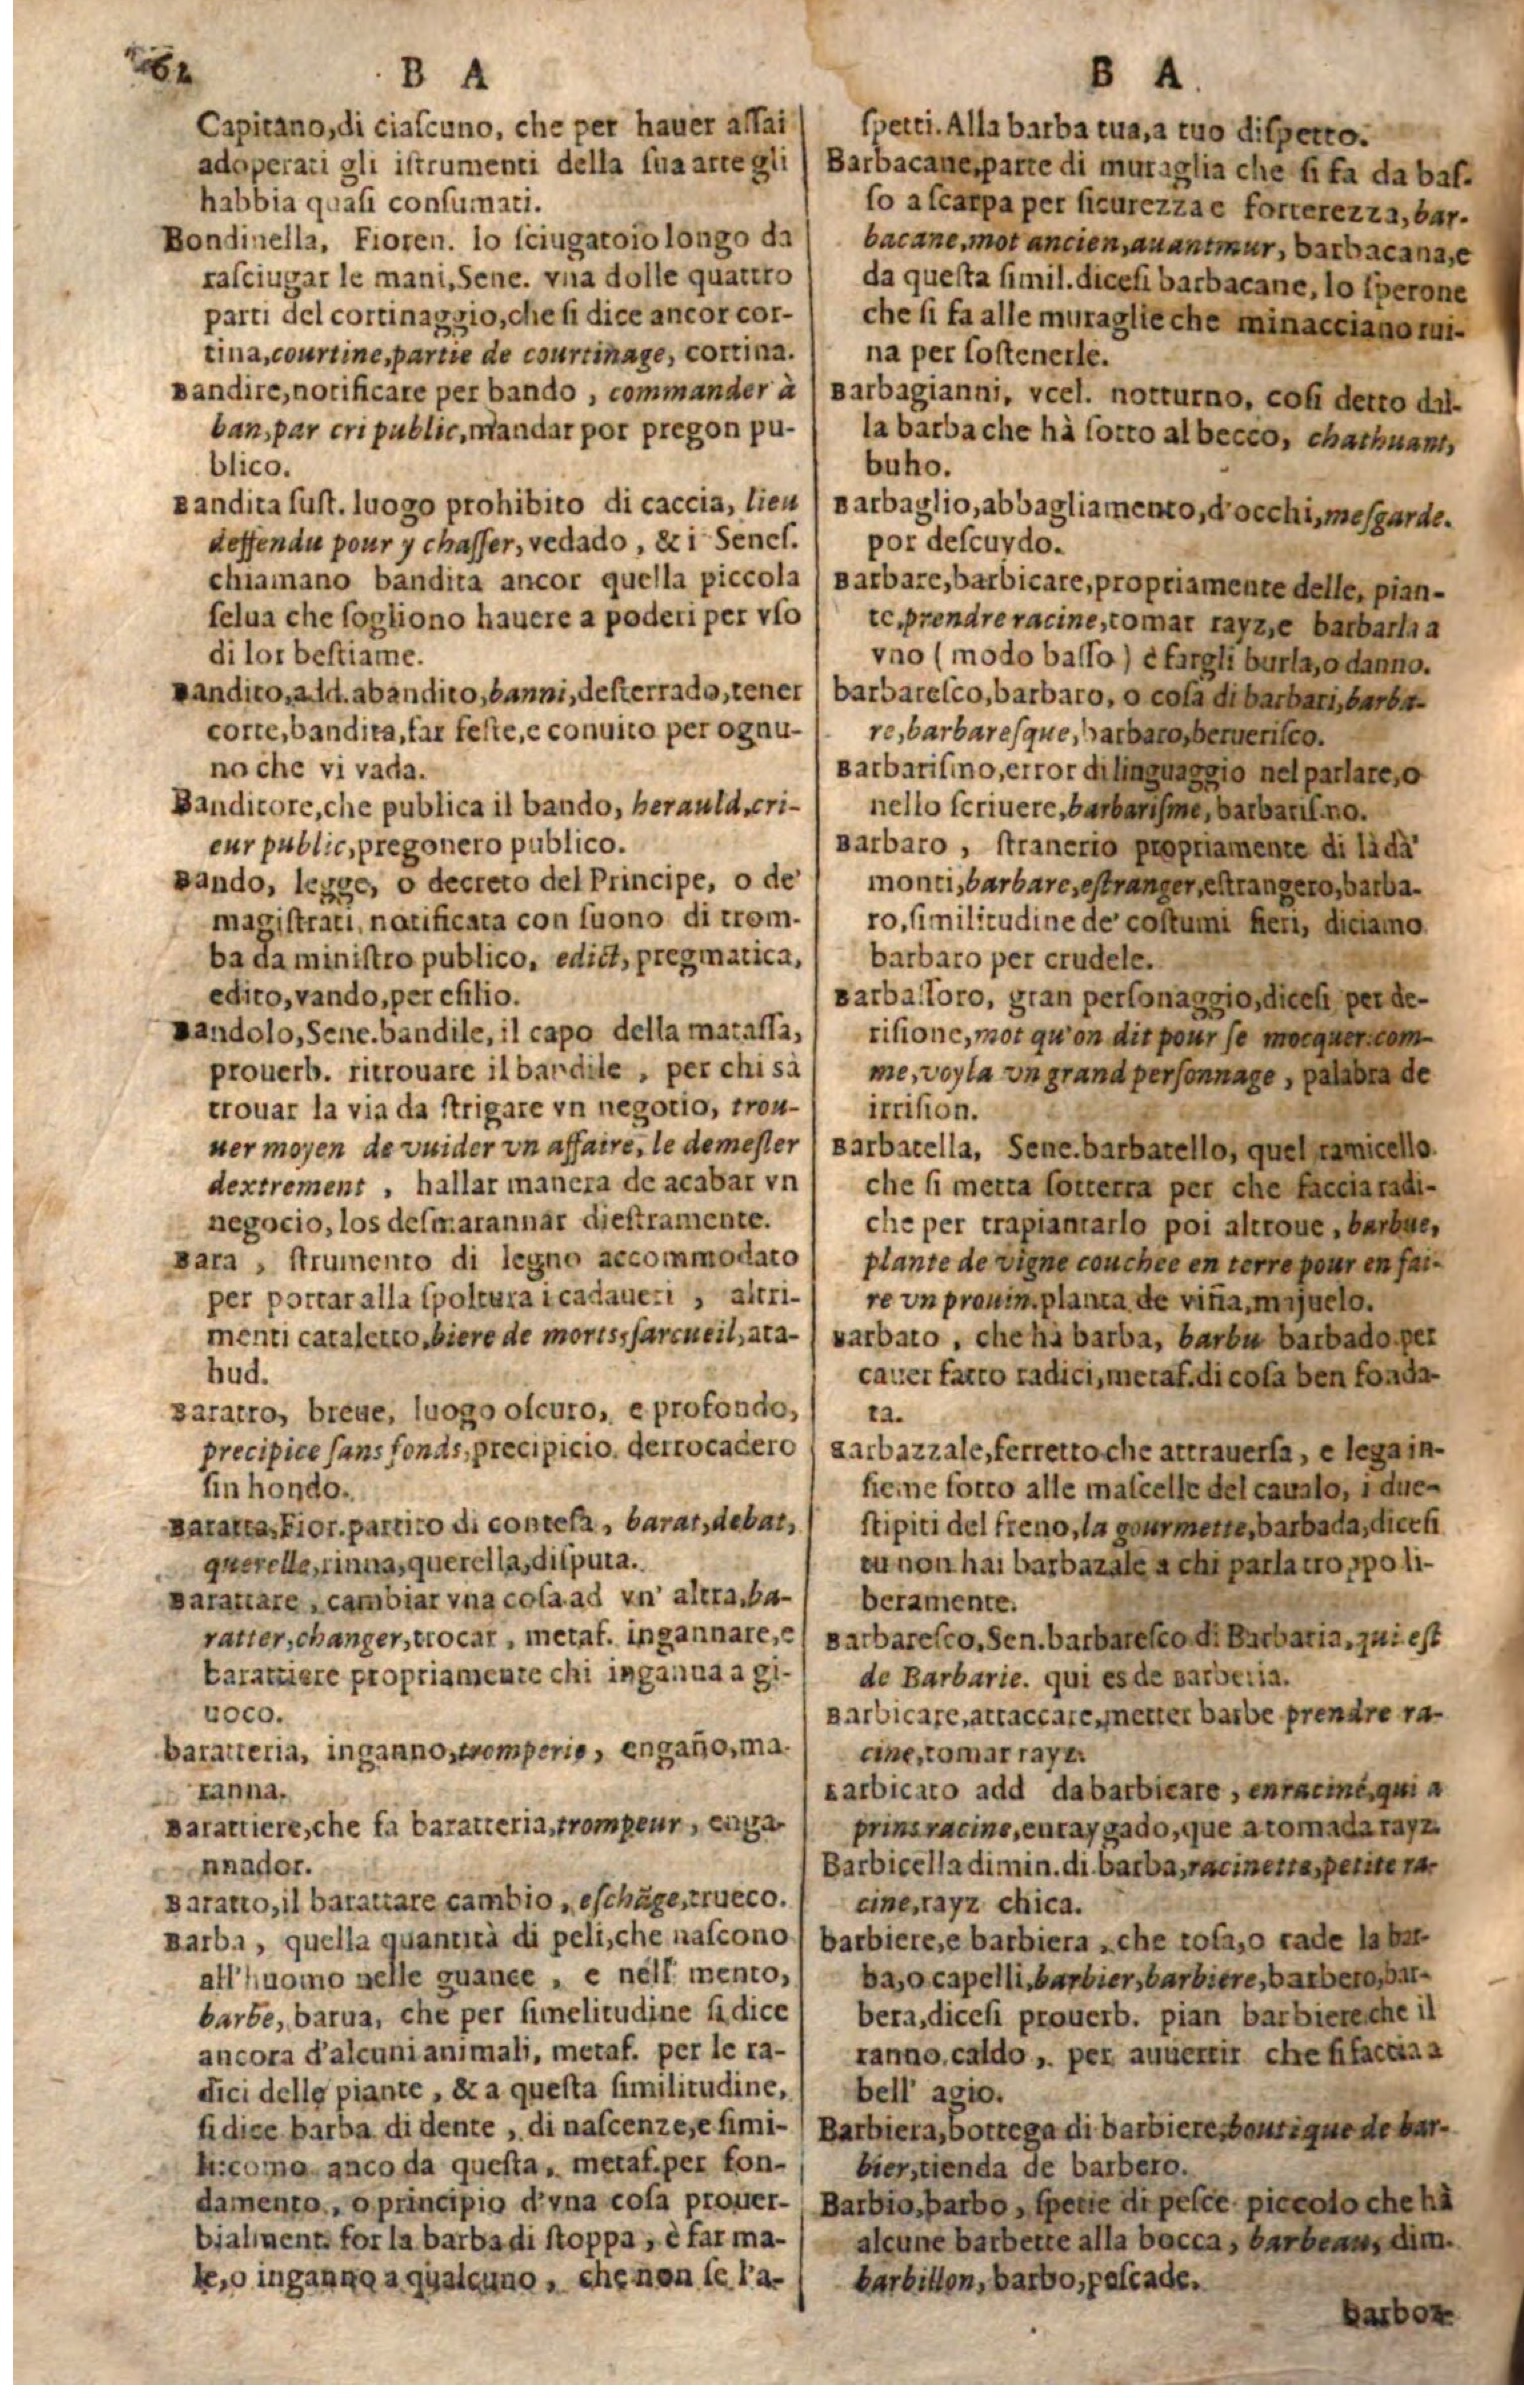 62
B A
Capitano,di ciaſcuno, che per hauer aſſai
adoperati gli iſtrumenti della ſua arte gli
habbia quaſi conſumati.
Bondinella, Fioren. lo ſciugatoio longo da
raſciugar le mani,Sene. vna dolle quattro
parti del cortinaggio,che ſi dice ancor cor-
tina,courtine,partie de courtinage, cortina.
Bandire,notificare per bando , commander à
ban,par cri public,mandar por pregon pu-
blico.
Bandita ſuſt. luogo prohibito di caccia, lieu
deffendu pour y chaſſer, vedado , & i Seneſ.
chiamano bandita ancor quella piccola
ſelua che ſogliono hauere a poderi per vſo
di lor beſtiame.
Bandito,add.abandito,banni,deſterrado,tener
corte,bandita,far feſte,e conuito per ognu-
no che vi vada.
Banditore,che publica il bando, herauld,cri-
eur public,pregonero publico.
Bando, legge, o decreto del Principe, o de'
magiſtrati, notificata con ſuono di trom-
ba da miniſtro publico, edict, pregmatica,
edito,vando,per eſilio.
Bandolo,Sene.bandile, il capo della mataſſa,
prouerb. ritrouare il bandile , per chi sà
trouar la via da ſtrigare vn negotio, trou-
uer moyen de vuider vn affaire, le demeſler
dextrement , hallar manera de acabar vn
negocio, los deſmarannar dieſtramente.
Bara , ſtrumento di legno accommodato
per portar alla ſpoltura i cadaueri , altri-
menti cataletto,biere de morts,ſarcueil,ata-
hud.
Baratro, breue, luogo oſcuro, e profondo,
precipice ſans fonds,precipicio. derrocadero
ſin hondo.
Baratta,Fior.partito di conteſa , barat,debat,
querelle,rinna,querella,diſputa.
Barattare , cambiar vna coſa ad vn' altra,ba-
ratter,changer,trocar , metaf. ingannare,e
barattiere propriamente chi inganna a gi-
uoco.
baratteria, inganno,tromperie, engaño,ma-
ranna.
Barattiere,che fa baratteria,trompeur , enga-
nnador.
Baratto,il barattare cambio , eſchãge,trueco.
Barba , quella quantità di peli,che naſcono
all'huomo nelle guance , e nell' mento,
barbe, barua, che per ſimelitudine ſi dice
ancora d'alcuni animali, metaf. per le ra-
dici delle piante , & a queſta ſimilitudine,
ſi dice barba di dente , di naſcenze,e ſimi-
li:como anco da queſta, metaf.per fon-
damento, o principio d'vna coſa prouer-
bialment. for la barba di ſtoppa , è far ma-
le,o inganno a qualcuno , che non ſe l'a-
B A
ſpetti.Alla barba tua,a tuo diſpetto.
Barbacane,parte di muraglia che ſi fa da baſ-
ſo a ſcarpa per ſicurezza e forterezza, bar-
bacane,mot ancien,auantmur, barbacana,e
da queſta ſimil.diceſi barbacane, lo ſperone
che ſi fa alle muraglie che minacciano rui-
na per ſoſtenerle.
Barbagianni, vcel. notturno, coſi detto dal-
la barba che hà ſotto al becco, chathuant,
buho.
Barbaglio,abbagliamento,d'occhi,meſgarde.
por deſcuydo.
Barbare,barbicare,propriamente delle, pian-
te,prendre racine,tomar rayz,e barbarla a
vno ( modo baſſo ) è fargli burla,o danno.
barbareſco,barbaro, o coſa di barbari,barba-
re,barbareſque,barbaro,berueriſco.
Barbariſmo,error di linguaggio nel parlare,o
nello ſcriuere,barbariſme, barbariſ.no.
Barbaro , ſtranerio propriamente di là dà'
monti,barbare,eſtranger,eſtrangero,barba-
ro,ſimilitudine de' coſtumi fieri, diciamo
barbaro per crudele.
Barbaſſoro, gran perſonaggio,diceſi per de-
riſione,mot qu'on dit pour ſe mocquer:com-
me,voyla vn grand perſonnage , palabra de
irriſion.
Barbatella, Sene.barbatello, quel ramicello
che ſi metta ſotterra per che faccia radi-
che per trapiantarlo poi altroue , barbue,
plante de vigne couchee en terre pour en fai-
re vn prouin.planta de viña,majuelo.
Barbato , che hà barba, barbu barbado per
cauer fatto radici,metaf.di coſa ben fonda-
ta.
Barbazzale,ferretto che attrauerſa , e lega in-
ſieme ſotto alle maſcelle del caualo, i due-
ſtipiti del freno,la gourmette,barbada,diceſi
tu non hai barbazale a chi parla troppo li-
beramente.
Barbareſco,Sen.barbareſco di Barbaria,qui eſt
de Barbarie. qui es de Barberia.
Barbicare,attaccare,metter barbe prendre ra-
cine,tomar rayz.
Barbicato add da barbicare , enraciné,qui a
prins racine,enraygado,que a tomada rayz.
Barbicella dimin.di barba,racinette,petite ra-
cine,rayz chica.
barbiere,e barbiera , che toſa,o rade la bar-
ba,o capelli,barbier,barbiere,barbero,bar-
bera,diceſi prouerb. pian barbiere che il
ranno caldo , per auuertir che ſi faccia a
bell' agio.
Barbiera,bottega di barbiere,boutique de bar-
bier,tienda de barbero.
Barbio,barbo , ſpetie di peſce piccolo che hà
alcune barbette alla bocca , barbeau, dim.
barbillon, barbo,peſcade.
Barboz-